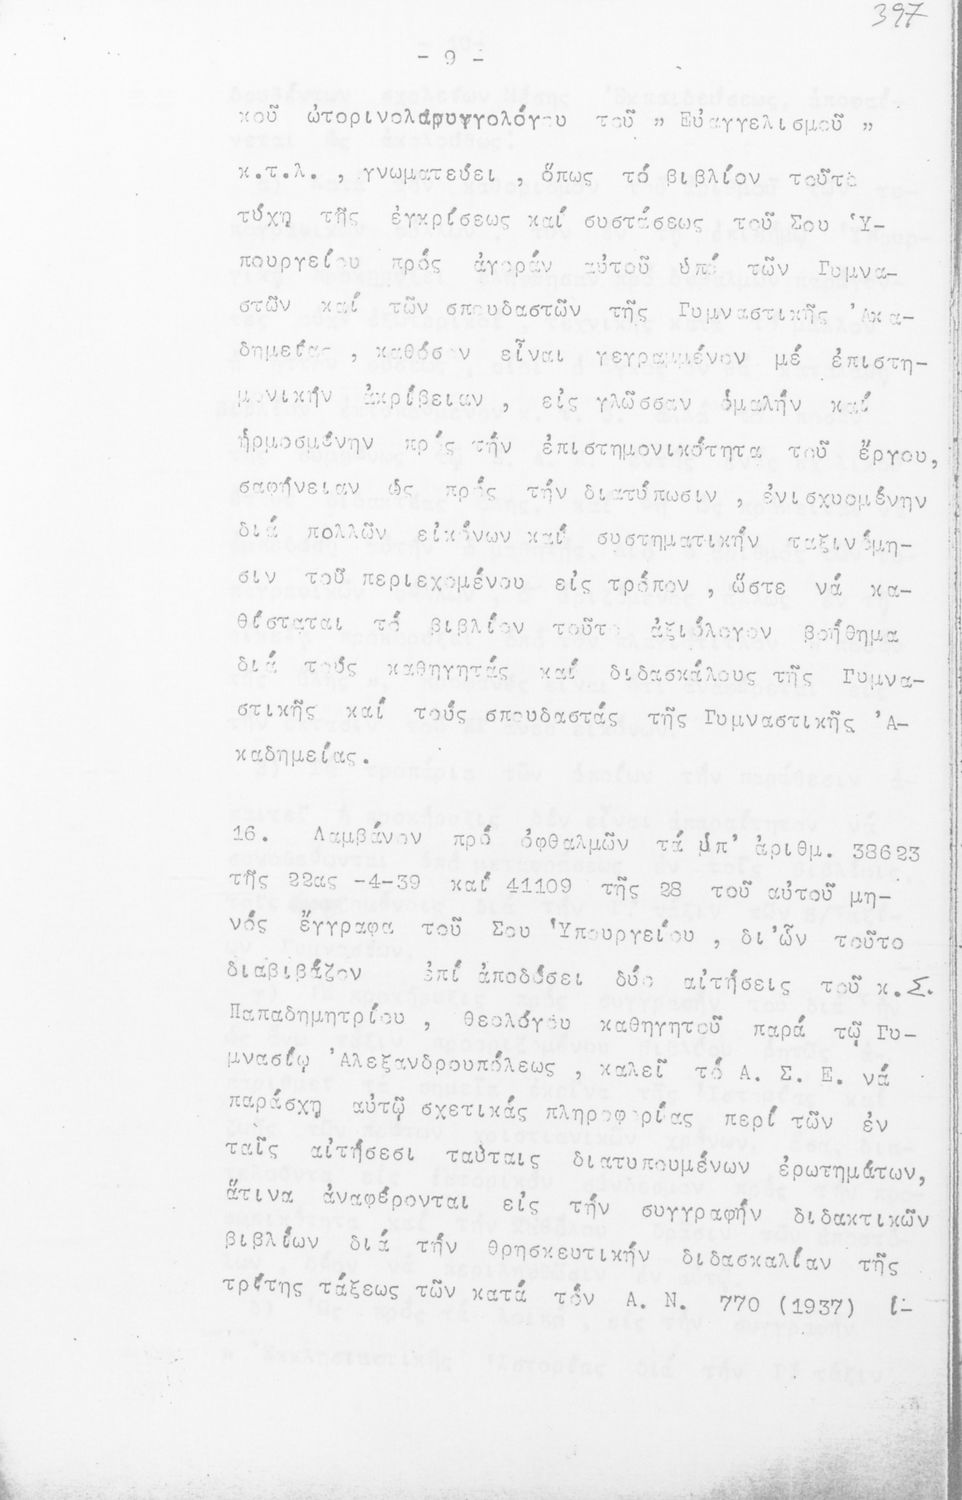 397
- 9 -
κοῦ ὠτορινολαρυγγολόγου τοῦ " Εὐαγγελισμοῦ "
κ.τ.λ. , γνωματεύει , ὅπως τό βιβλίον τοῦτο
τύχῃ τῆς ἐγκρίσεως καί συστάσεως τοῦ Σου Ὑ-
πουργείου πρός ἀγοράν αὐτοῦ ὑπό τῶν Γυμνα-
στῶν καί τῶν σπουδαστῶν τῆς Γυμναστικῆς Ἀκα-
δημείας , καθόσον εἶναι γεγραμμένον μέ ἐπιστη-
μονικήν ἀκρίβειαν , εἰς γλῶσσαν ὁμαλήν καί
ἡρμοσμένην πρός τήν ἐπιστημονικότητα τοῦ ἔργου,
σαφήνειαν ὡς πρός τήν διατύπωσιν , ἐνισχυομένην
διά πολλῶν εἰκόνων καί συστηματικήν ταξινόμη-
σιν τοῦ περιεχομένου εἰς τρόπον , ὥστε νά κα-
θίσταται τό βιβλίον τοῦτο ἀξιόλογον βοήθημα
διά τούς καθηγητάς καί διδασκάλους τῆς Γυμνα-
στικῆς καί τούς σπουδαστάς τῆς Γυμναστικῆς Ἀ-
καδημείας.
16. Λαμβάνον πρό ὀφθαλμῶν τά ὑπ' ἀριθμ. 38623
τῆς 22ας -4-39 καί 41109 τῆς 28 τοῦ αὐτοῦ μη-
νός ἔγγραφα τοῦ Σου Ὑπουργείου , δι'ὧν τοῦτο
διαβιβάζον ἐπί ἀποδόσει δύο αἰτήσεις τοῦ κ. Σ.
Παπαδημητρίου , θεολόγου καθηγητοῦ παρά τῷ Γυ-
μνασίῳ Ἀλεξανδρουπόλεως , καλεῖ τό Α. Σ. Ε. νά
παράσχῃ αὐτῷ σχετικάς πληροφορίας περί τῶν ἐν
ταῖς αἰτήσεσι ταύταις διατυπουμένων ἐρωτημάτων,
ἅτινα ἀναφέρονται εἰς τήν συγγραφήν διδακτικῶν
βιβλίων διά τήν θρησκευτικήν διδασκαλίαν τῆς
τρίτης τάξεως τῶν κατά τόν Α. Ν. 770 (1937) ἱ-